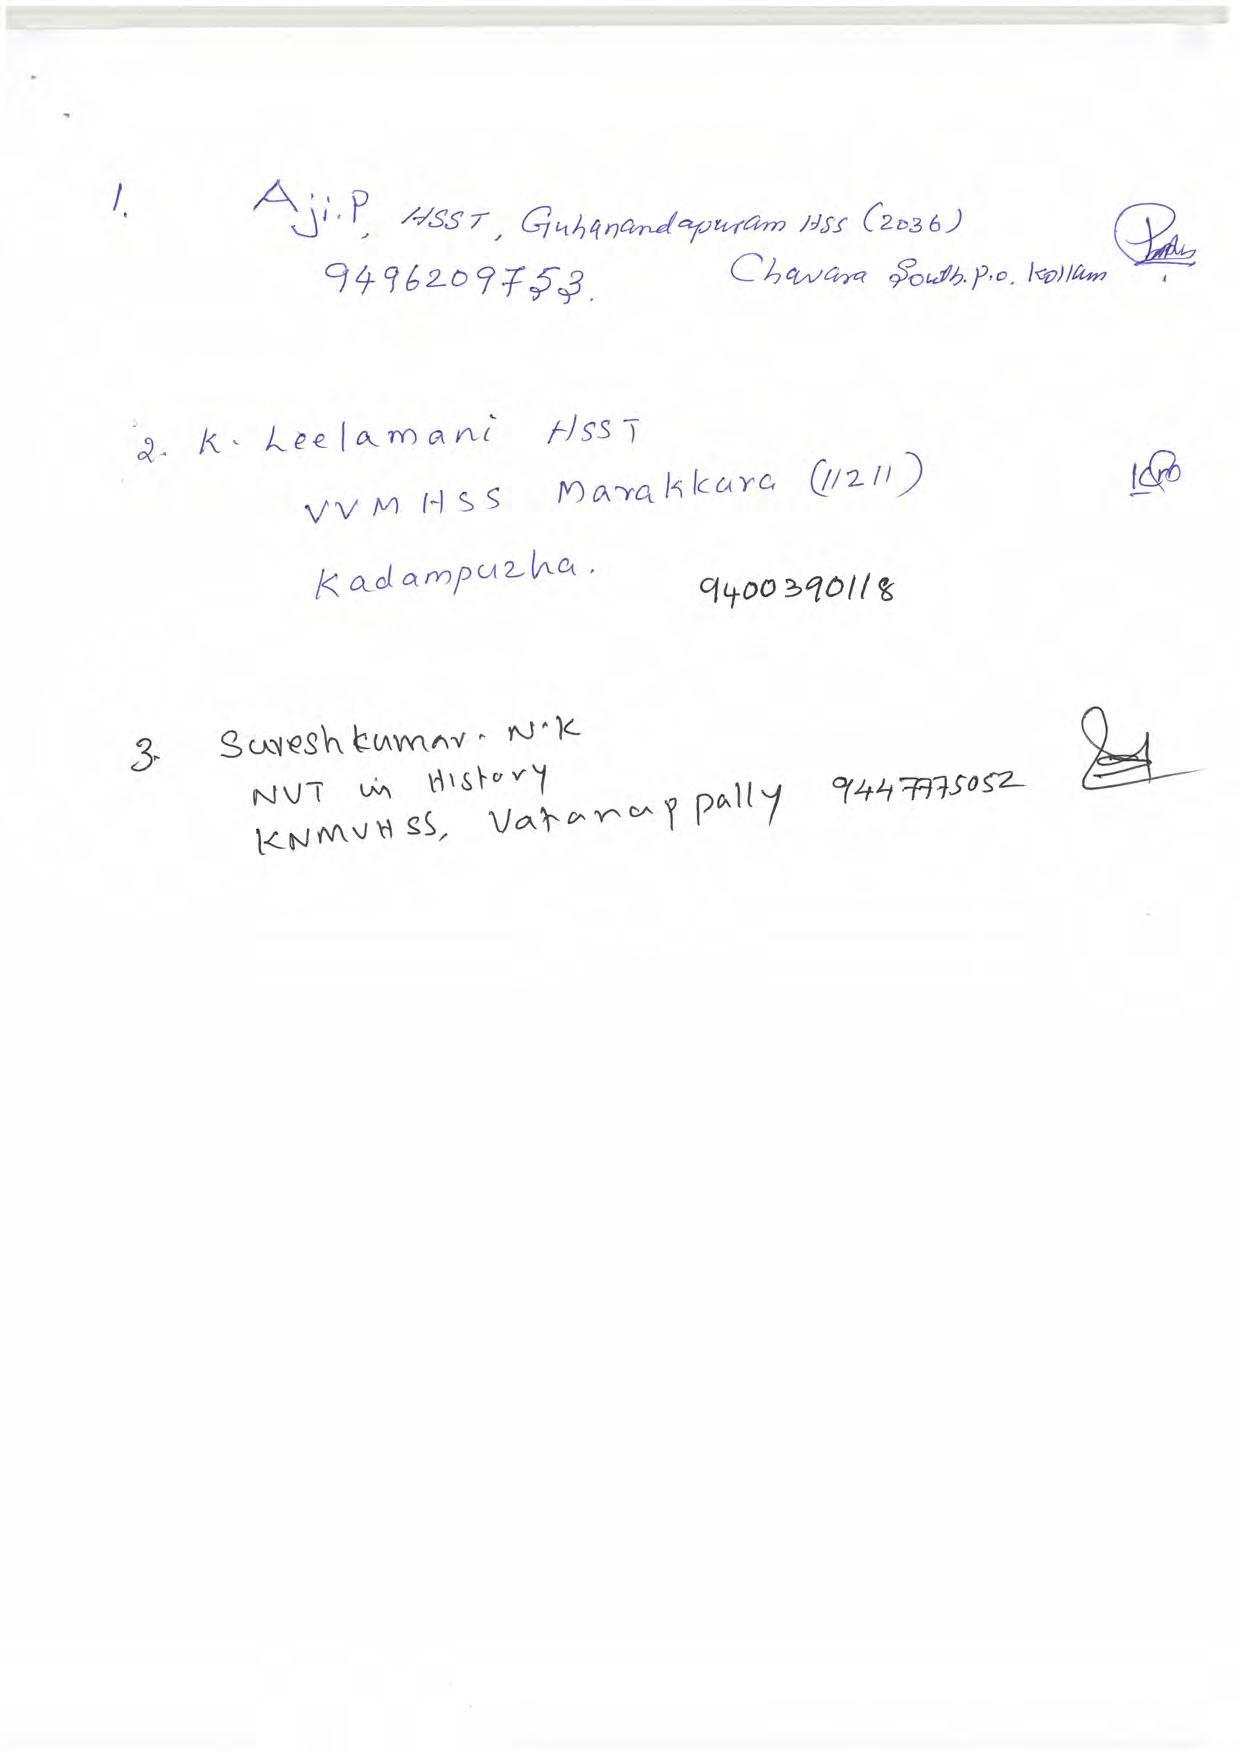 1. Aji.P, HSST, Guhanandapuram HSS (2036)
9496209753. Chavara South. P.O. Kollam
2. K. Leelamani HSST
VVMHSS Marakkara (11211)
Kadampuzha. 9400390118
3. Sureshkumar. N.K
NVT in History
KNMVHSS, Vatanappally 9447775052